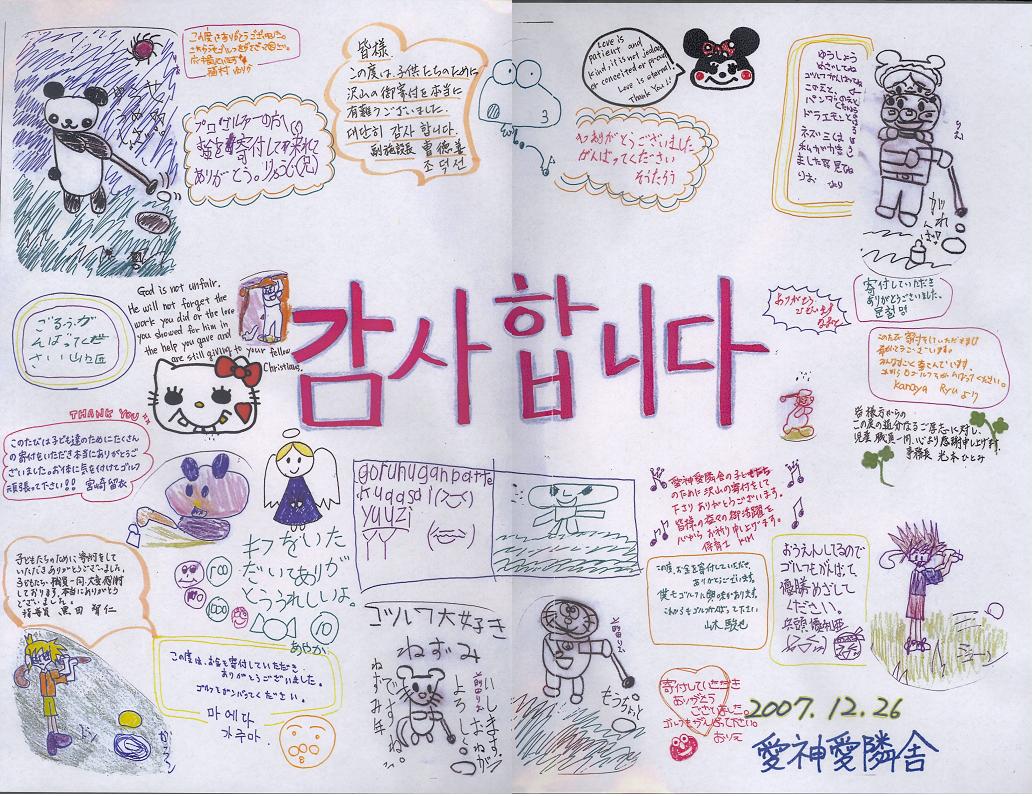 この度はありがとうございました。
プロゴルファーの方へ
お金を寄付して来れて
ありがとう。りゅうじ(兄)
皆様
この度は、子供たちのために
沢山の御寄付を本当に
有難うございました。
대단히 감사합니다.
副施設長 曺德善
조덕선
Love is
patient and
kind, it is not jealous
or conceited or proud
Love is eternal!
Thank You!!
ありがとうございました
がんばってください
そうたろう
ゆうしょう
めざしてね
ゴルフがんばってね
パンダのえと
ドラエモンと
ネズミくんは
私がかき
ました
がんばれ
God is not unfair.
He will not forget the
work you did or the love
you showed for him in
the help you gave and
are still giving to your fellow
Christians.
ごるふが
んばってくだ
さい 山匠
감사합니다
ありがとう
ございます
寄付していただき
ありがとうございました。
このたび寄付をしていただきまして
ありがとうございます。
Kanaya Ryuより
皆様方からの
この度の過分なるご厚志に対し、
児童職員一同、心より感謝申し上げます
事務長 光本ひとみ
THANK YOU
このたびは子ども達のためにたくさん
の寄付をいただき本当にありがとうご
ざいました。お体に気を付けてゴルフ
頑張って下さい!! 宮崎留衣
goruhuganbatte
kudasai
yuuzi
愛神愛隣舎の子どもたち
のために沢山の寄付をして
下さりありがとうございます。
皆様の益々の御活躍を
心からお祈り申し上げます。
保育士 KIM
キフをいた
だいてあり
とううれしいよ。
100
1000
10
あやか
子どもたちのために寄付をして
いただきありがとうございました。
子どもたち・職員一同、大変感謝
しております。本当にありがとう
ございました。
指導員 黒田 智仁
この度、お金を寄付していただき、
ありがとうございます。
僕もゴルフに興味があります。
これからもゴルフがんばって下さい
山木 駿也
おうえんしてるので
ゴルフもがんばって、
優勝めざして
ください。
この度は、お金を寄付していただき、
ありがとうございました。
ゴルフもガンバってください。
마에다
카주마
ゴルフ大好き
ねずみ
ねずみ年
です。
よろしく
おねがい
いします。
もうちょっと
寄付していただき
ありがとう
ございました。
ゴルフもがんばって下さい。
おりえ
2007.12.26
愛神愛隣舎